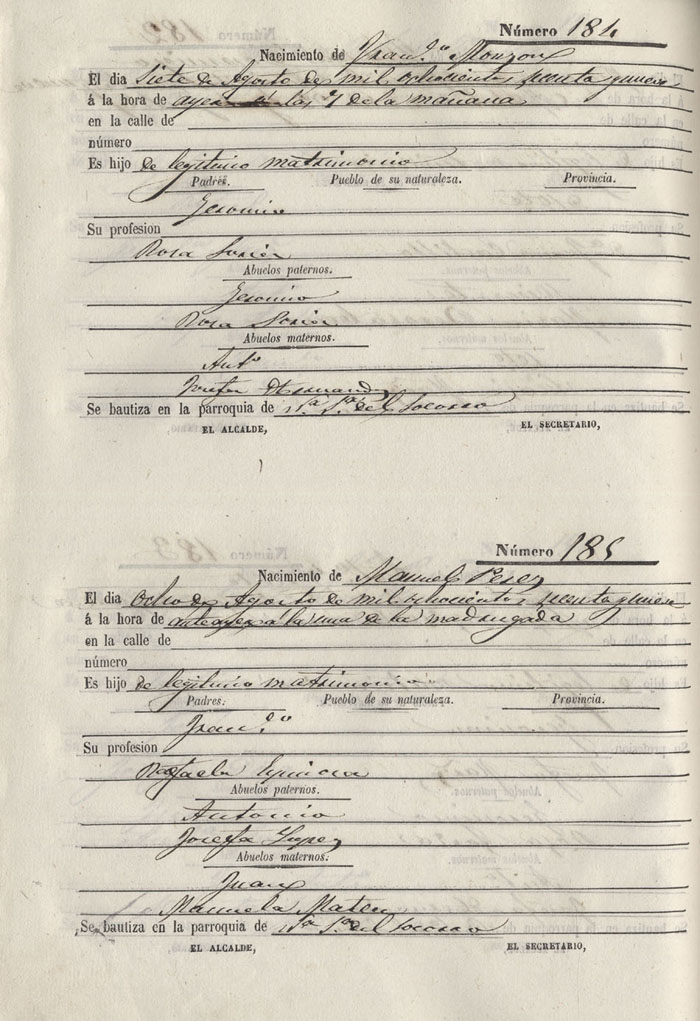 Número 184
Nacimiento de Fran.co Monzon
El dia Siete de Agosto de mil ochocientos y nueve
á la hora de ayer á las 7 de la mañana
en la calle de
número
Es hijo de legitimo matrimonio
Padres. Pueblo de su naturaleza. Provincia.
Geronimo
Su profesion
Rosa
Abuelos paternos.
Geronimo
Rosa
Abuelos maternos.
Ant.o
Josefa Hernandez
Se bautiza en la parroquia de N.a S.a del Socorro
EL ALCALDE, EL SECRETARIO,
Número 185
Nacimiento de Manuel Perez
El dia Ocho de Agosto de mil ochocientos y nueve
á la hora de anteayer a la una de la madrugada
en la calle de
número
Es hijo de legitimo matrimonio
Padres. Pueblo de su naturaleza. Provincia.
Fran.co
Su profesion
Rafaela Espinosa
Abuelos paternos.
Antonio
Josefa Lopez
Abuelos maternos.
Juan
Manuela Mateu
Se bautiza en la parroquia de N.a S.a del Socorro
EL ALCALDE, EL SECRETARIO,